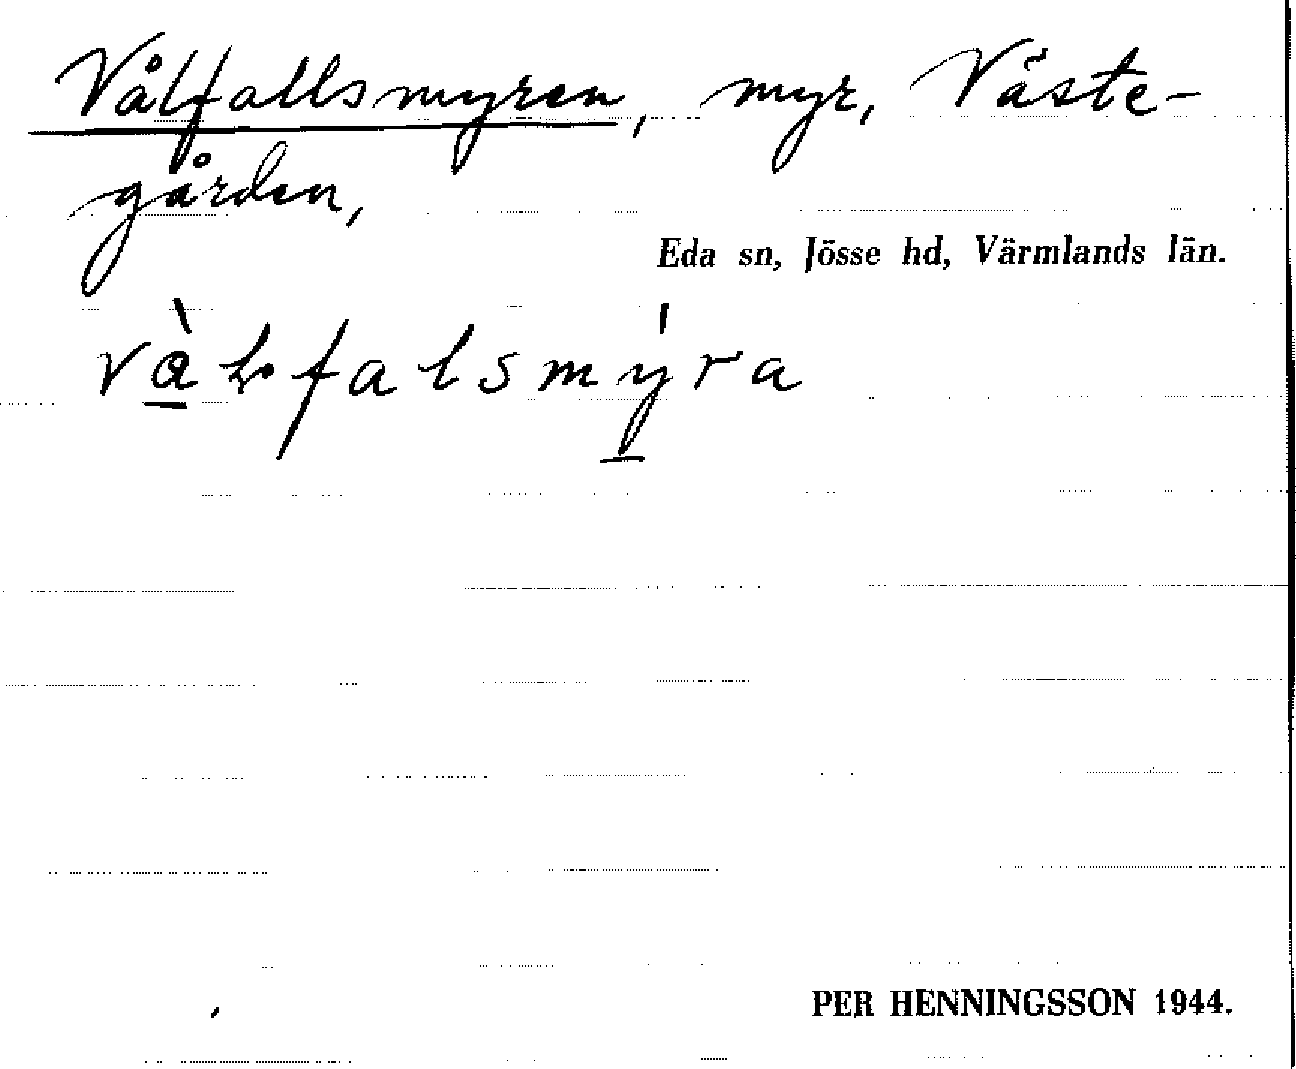 Vålfallsmyren, myr, Väste-
gården,
Eda sn, Jösse hd, Värmlands län.
vàɫfalsmýra
PER HENNINGSSON 1944.